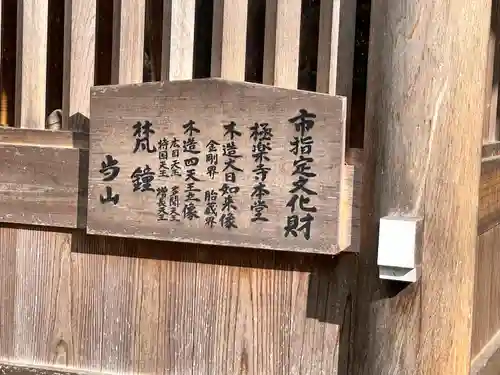 市指定文化財
極楽寺本堂
木造大日如来像
金剛界 胎蔵界
木造四天王立像
広目天王 多聞天王
持国天王 増長天王
梵鐘
当山